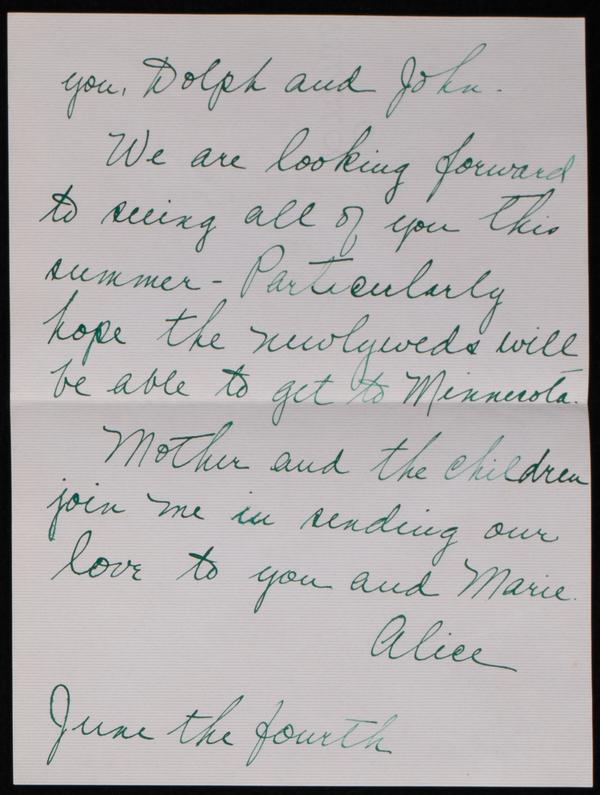 you, Dolph and John.
We are looking forward
to seeing all of you this
summer - Particularly
hope the newlyweds will
be able to get to Minnesota.
Mother and the children
join me in sending our
love to you and Marie.
Alice
June the fourth